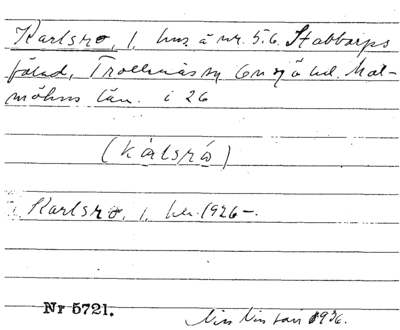 Karlsro, 1 hus å nr. 5:6 Stabbarps
fälad, Trollenäs sn, Onsjö hd. Mal-
möhus län. i 26
(Kárlsró)
Karlsro, 1, 1926-.
Nr 5721.
1936.